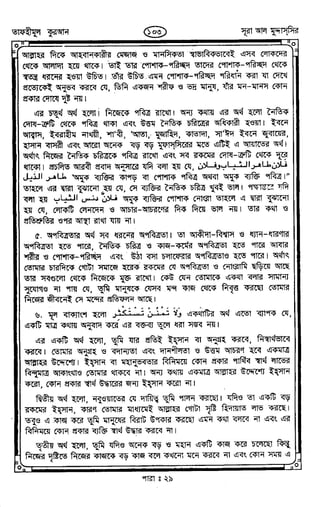 তাফহীমুল কুরআন
১০৩
সূরা আল মুদ্দাসসির
আল্লাহর দিকে আহবানকারীর মেজাজ ও মানসিকতা স্বাভাবিকভাবেই এসব লোকদের
থেকে আলাদা হয়ে থাকে। তাই তার পোশাক-পরিচ্ছদ তাদের পোশাক-পরিচ্ছদ থেকে
স্বতন্ত্র ধরনের হওয়া উচিত। তাঁর উচিত এমন পোশাক-পরিচ্ছদ পরিধান করা যা দেখে
প্রত্যেকেই অনুভব করবে যে, তিনি একজন শরীফ ও ভদ্র মানুষ, যাঁর মন-মানস কোন
প্রকার দোষে দুষ্ট নয়।
এর চতুর্থ অর্থ হলো। নিজেকে পবিত্র রাখো। অন্য কথায় এর অর্থ হলো নৈতিক
দোষ-ত্রুটি থেকে পবিত্র থাকা এবং উত্তম নৈতিক চরিত্রের অধিকারী হওয়া। ইবনে
আব্বাস, ইবরাহীম নাখয়ী, শা'বী, 'আতা, মুজাহিদ, কাতাদা, সা'ঈদ ইবনে জুবায়ের,
হাসান বাসরী এবং আরো অনেক বড় বড় মুফাস্সিরের মতে এটিই এ আয়াতের অর্থ।
অর্থাৎ নিজের নৈতিক চরিত্রকে পবিত্র রাখো এবং সব রকমের দোষ-ত্রুটি থেকে দূরে
থাকো। প্রচলিত আরবী প্রবাদ অনুসারে যদি বলা হয় যে, فلان طاهر الثياب وفلان
طاهر الذيل "অমুক ব্যক্তির কাপড় বা পোশাক পবিত্র অথবা অমুক ব্যক্তি পবিত্র।"
তাহলে এর দ্বারা বুঝানো হয় যে, সে ব্যক্তির নৈতিক চরিত্র খুবই ভাল। পক্ষান্তরে যদি
বলা হয় فلان دنس الثياب অমুক ব্যক্তির পোশাক নোংরা তাহলে এ দ্বারা বুঝানো
হয় যে, লোকটি লেনদেন ও আচার-আচরণের দিক দিয়ে ভাল নয়। তার কথা ও
প্রতিশ্রুতির ওপর আস্থা রাখা যায় না।
৫. অপবিত্রতার অর্থ সব ধরনের অপবিত্রতা। তা আকীদা-বিশ্বাস ও ধ্যান-ধারণার
অপবিত্রতা হতে পারে, নৈতিক চরিত্র ও কাজ-কর্মের অপবিত্রতা হতে পারে আবার
শরীর ও পোশাক-পরিচ্ছদ এবং উঠা বসা চলাফেরার অপবিত্রতাও হতে পারে। অর্থাৎ
তোমার চারদিকে গোটা সমাজে হরেক রকমের যে অপবিত্রতা ও নোংরামি ছড়িয়ে আছে
তার সবগুলো থেকে নিজেকে মুক্ত রাখো। কেউ যেন তোমাকে একথা বলার সামান্য
সুযোগও না পায় যে, তুমি মানুষকে যেসব মন্দ কাজ থেকে নিবৃত্ত করছো তোমার
নিজের জীবনেই সে মন্দের প্রতিফলন আছে।
৬. মূল বাক্যাংশ হলো ولا تمنن تستكثر একথাটির অর্থ এতো ব্যাপক যে,
একটি মাত্র কথায় অনুবাদ করে এর বক্তব্য তুলে ধরা সম্ভব নয়।
এর একটি অর্থ হলো, তুমি যার প্রতিই ইহসান বা অনুগ্রহ করবে, নিঃস্বার্থভাবে
করবে। তোমার অনুগ্রহ ও বদান্যতা এবং দানশীলতা ও উত্তম আচরণ হবে একমাত্র
আল্লাহর উদ্দেশ্যে। ইহসান বা মহানুভবতার বিনিময়ে কোন প্রকার পার্থিব স্বার্থ লাভের
বিন্দুমাত্র আকাংখাও তোমার থাকবে না। অন্য কথায় একমাত্র আল্লাহর উদ্দেশ্যে ইহসান
করো, কোন প্রকার স্বার্থ উদ্ধারের জন্য ইহসান করো না।
দ্বিতীয় অর্থ হলো, নবুওয়াতের যে দায়িত্ব তুমি পালন করছো। যদিও তা একটি বড়
রকমের ইহসান, কারণ তোমার মাধ্যমেই আল্লাহর গোটা সৃষ্টি হিদায়াত লাভ করছে।
তবুও এ কাজ করে তুমি মানুষের বিরাট উপকার করছো এমন কথা বলবে না এবং এর
বিনিময়ে কোন প্রকার ব্যক্তি স্বার্থ উদ্ধার করবে না।
তৃতীয় অর্থ হলো, তুমি যদিও অনেক বড় ও মহান একটি কাজ করে চলেছো কিন্তু
নিজের দৃষ্টিতে নিজের কাজকে বড় কাজ বলে কখনো মনে করবে না এবং কোন সময় এ
পারা : ২৯